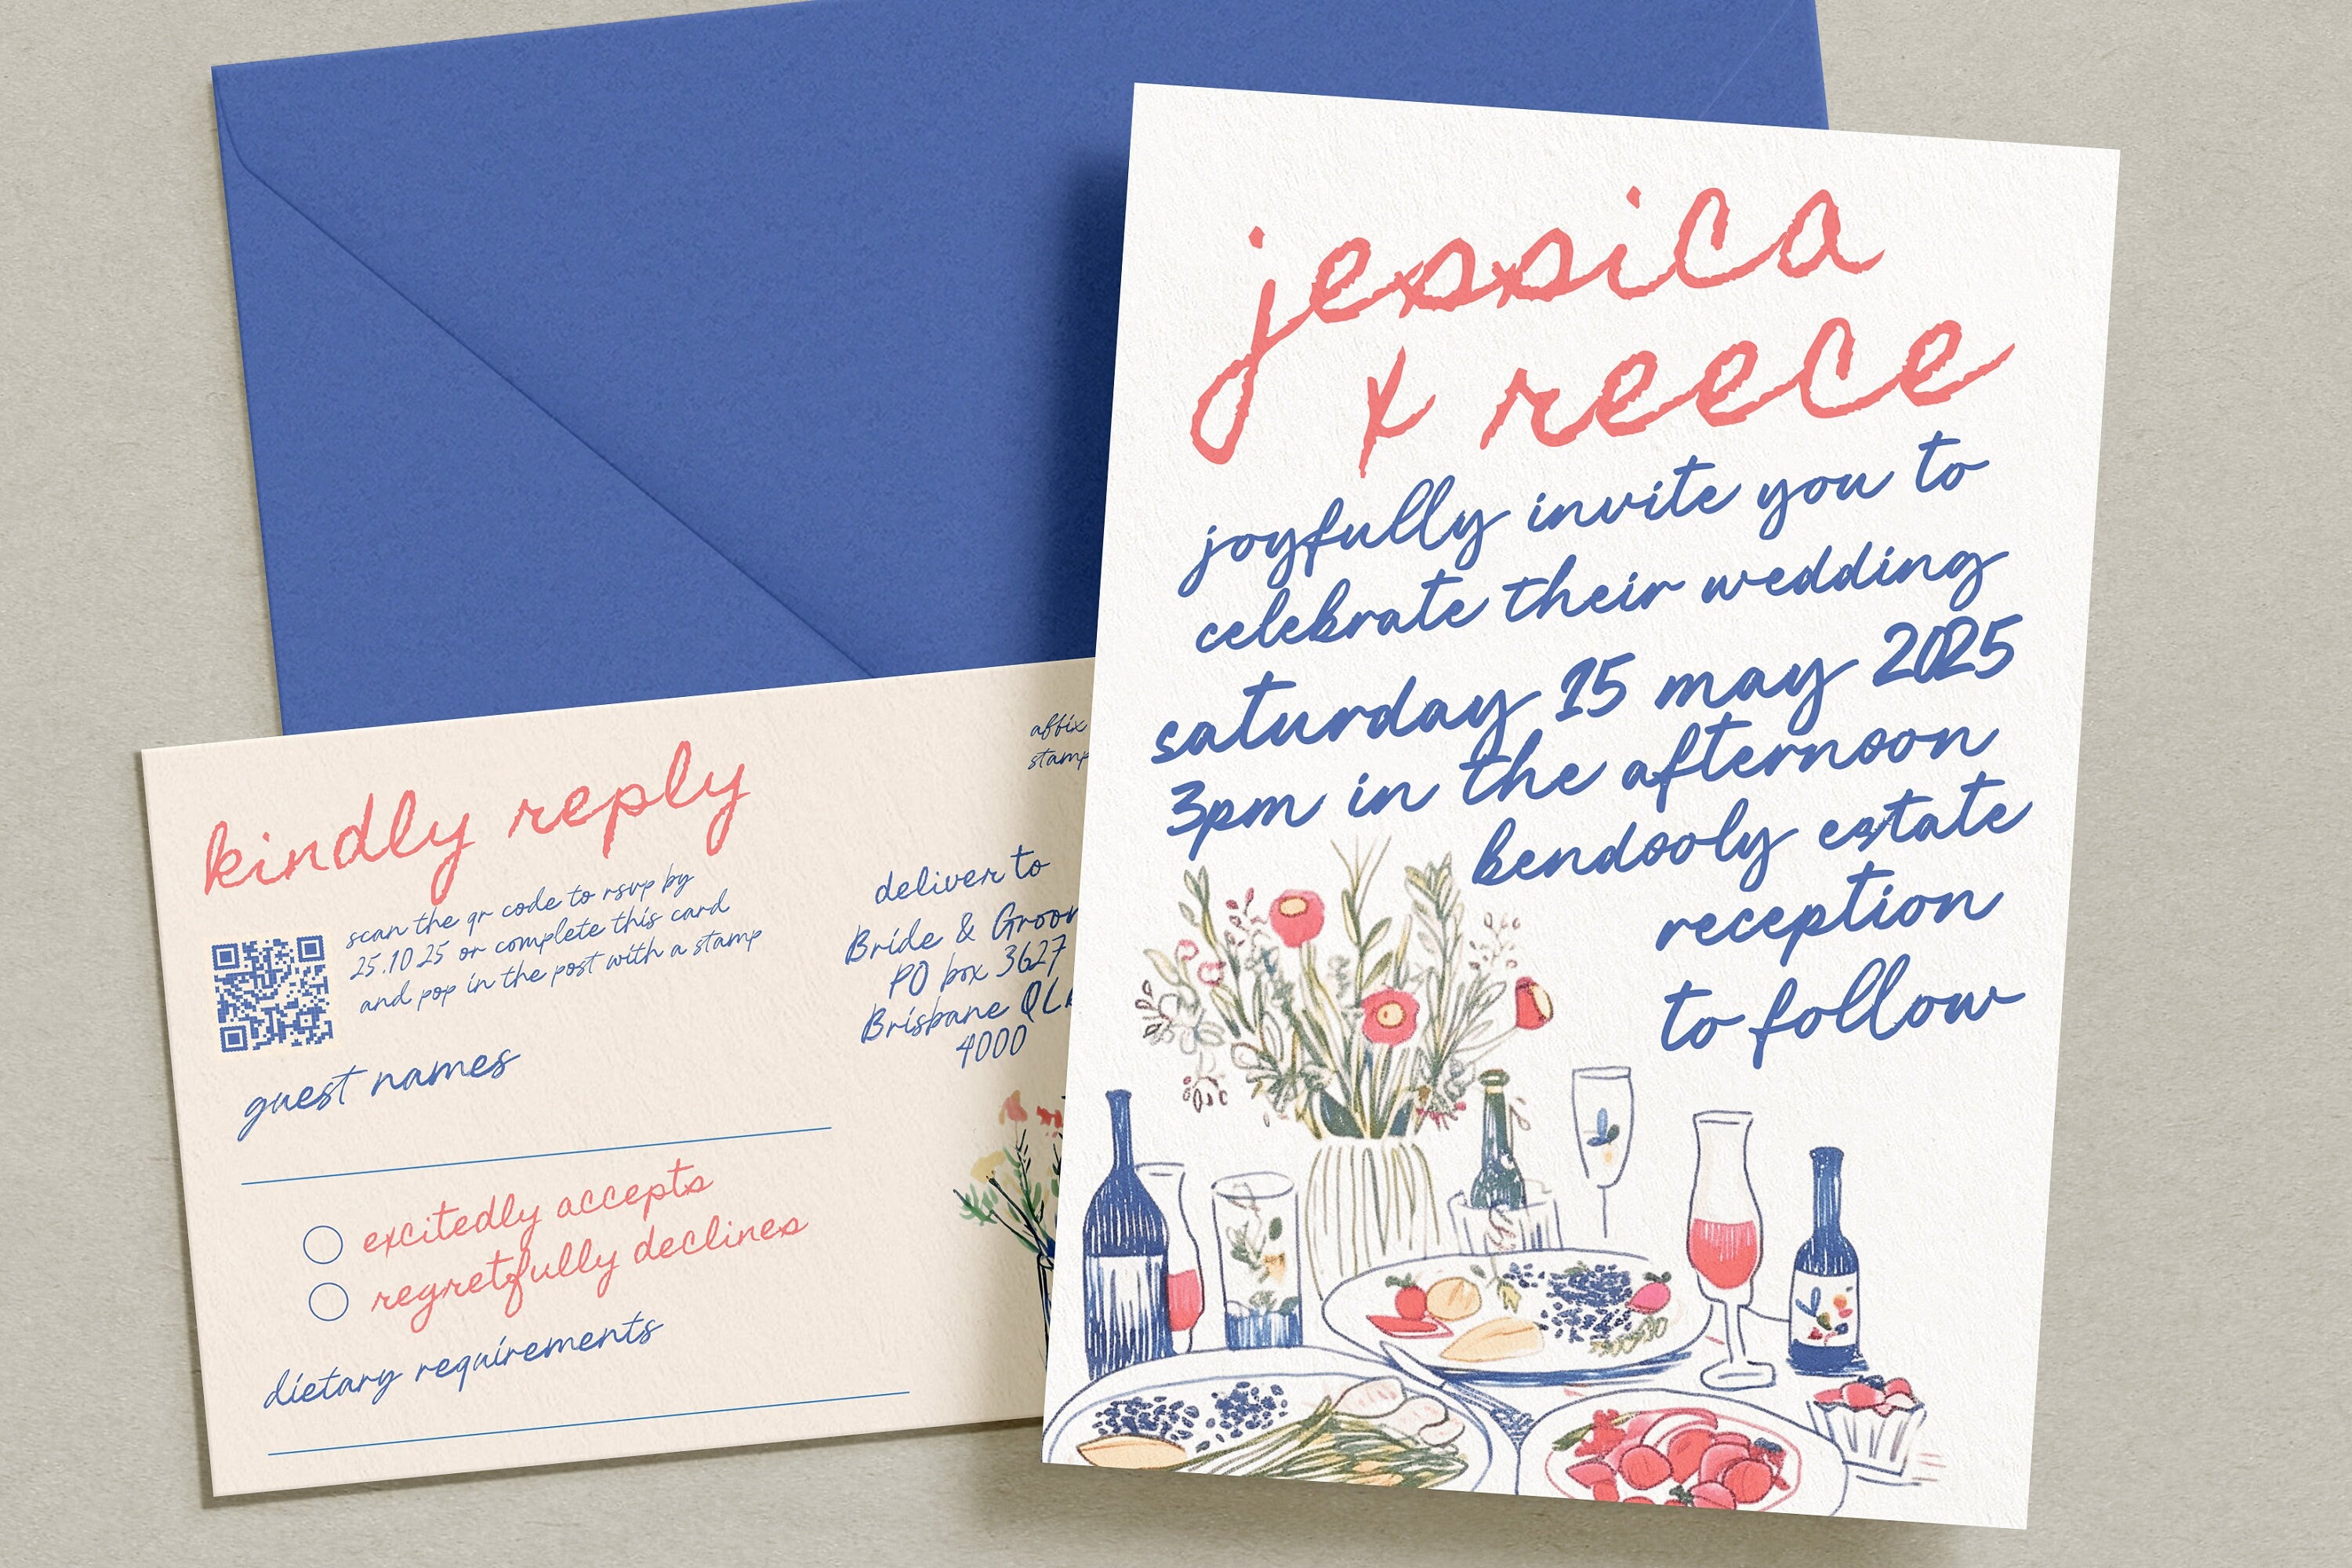 jessica
x reece
joyfully invite you to
celebrate their wedding
saturday 15 may 2025
3pm in the afternoon
bendooly estate
reception
to follow
kindly reply
scan the qr code to rsvp by
25.10 25 or complete this card
and pop in the post with a stamp
guest names
excitedly accepts
regretfully declines
dietary requirements
affix
stamp
deliver to
Bride & Groom
PO box 3627
Brisbane QL
4000